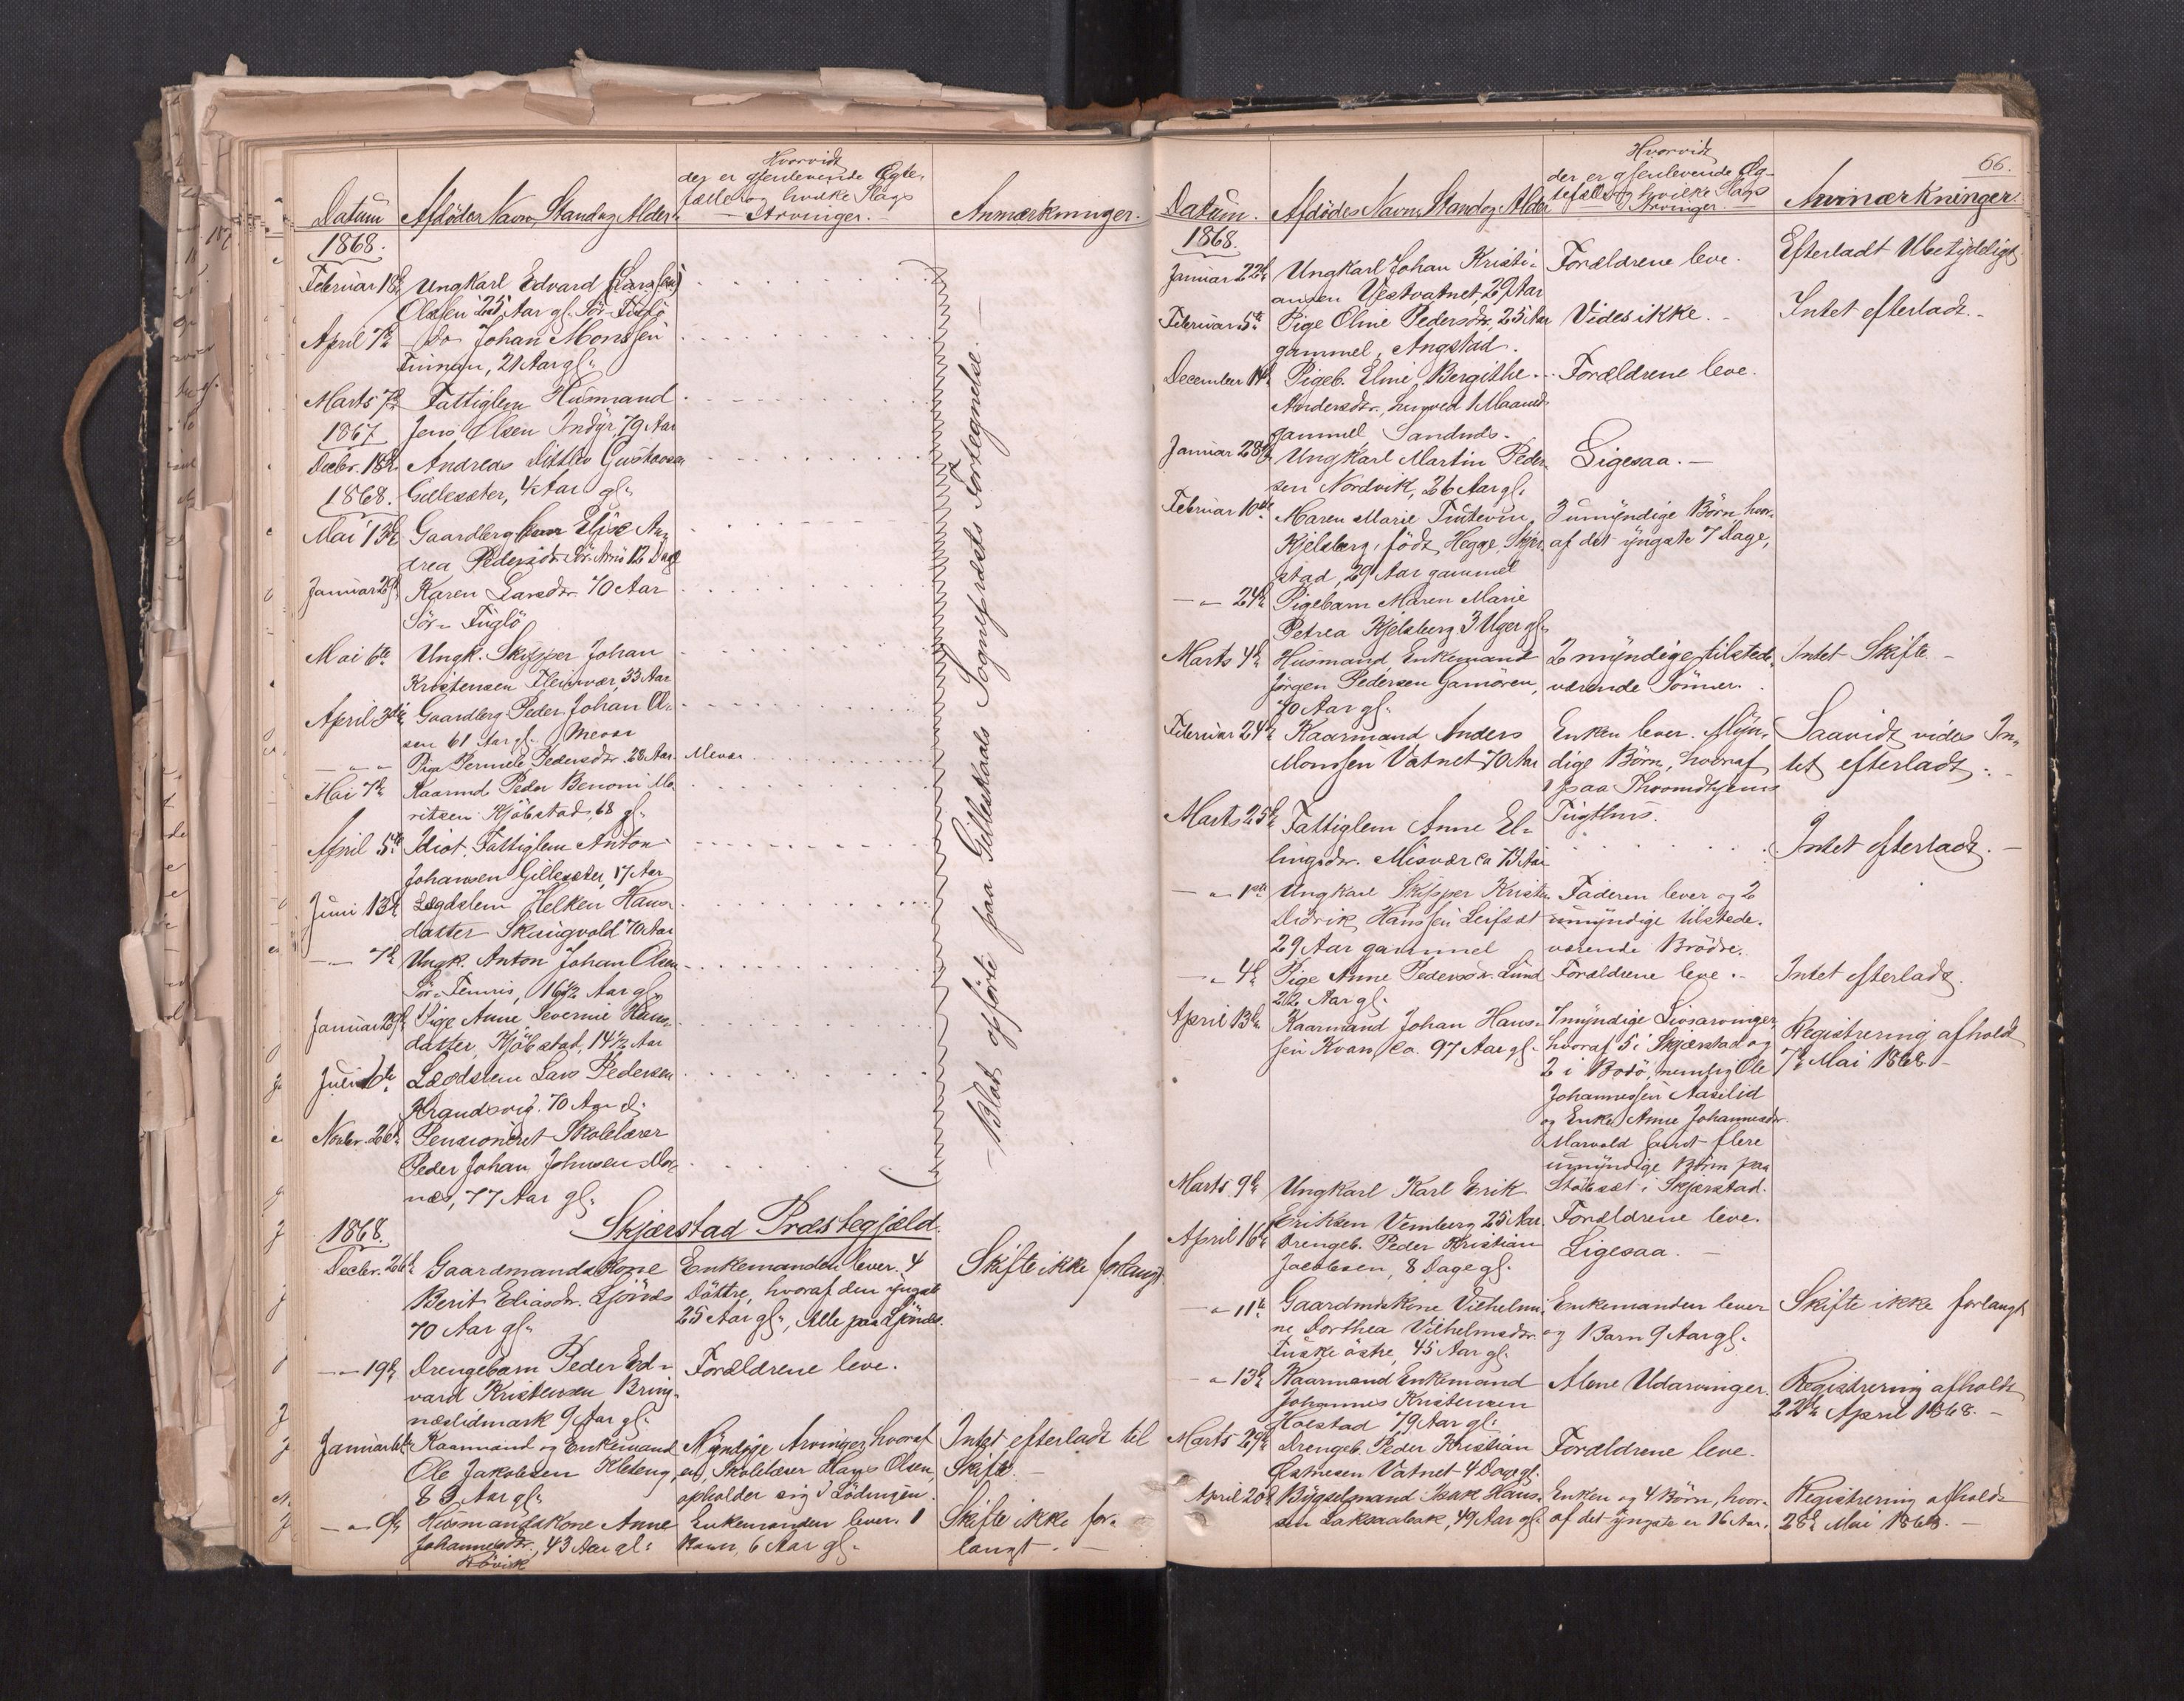 Hvorvidt
der er gjenlevende Ægte-
fælle og hvilke Slags
Datum Afdødes Navn, Stand og Alder. Arvinger. Anmærkninger.
1868.
Februar 18de Ungkarl Edvard
Olsen 25 Aar gl. Sör-Fuglö
April 7de do Johan Monssen
21 Aar gl.
Marts 7de Fattiglem Husmand
1867 Jens Olsen Indyr, 79 Aar
Decbr. 18de Andreas Gustavsen
1868. Gilleseter, 4 Aar gl.
Mai 13de Gaardbrg Elise An-
drea Pedersdr. Sör-Arnö 12 Dage
Januar 29de Karen Larsdr. 70 Aar
Sör-Fuglö
Mai 6te Ungk. Skipper Johan
Kristensen 33 Aar
April 3die Gaardbrg. Peder Johan Ol-
sen 61 Aar gl. Mevær
Pige Pernele Pedersdr. 28 Aar. Mevær
Mai 7de Kaarmd. Peder Benoni Mo-
ritsen Kjöbstad, 68 gl.
April 5te Idiot, Fattiglem Anton
Johansen Gilleseter, 17 Aar
Juni 13de Lægdslem Helken Hans-
datter Skaugvold 70 Aar
7de Ungk. Anton Johan Olsen
Sör-Finnis, 16½ Aar gl.
Januar 29de Pige Anne Severine Hans-
datter, Kjöbstad, 14½ Aar
Juli 6te Lægdslem Lars Pedersen
70 Aar gl.
Novbr. 26de Pensioneret Skolelærer
Peder Johan Johnsen Mor-
næs, 77 Aar gl.
Blot opförte paa Gilleskaals Sogneprests Fortegnelse. —
Skjerstad Præstegjæld.
1868.
Decbr. 26de Gaardmandskone Enkemanden lever. 4 Skifte ikke forlangt.
Berit Eliasdr. Ljönes Döttre, hvoraf den yngste
70 Aar gl. 25 Aar gl., Alle paa Ljönes.
19de Drengebarn Peder Ed- Forældrene leve.
vard Kristensen Bring-
næslidmark 9 Aar gl.
Januar Kaarmand og Enkemand Myndige Arvinger hvoraf Intet efterladt til
Ole Jakobsen en, Skolelærer Hans Olsen, Skifte. —
83 Aar gl. opholder sig i Lödingen.
9de Husmandskone Anne Enkemanden lever. 1 Skifte ikke for-
Johannesdr., 43 Aar gl. Barn, 6 Aar gl. langt. —
Rövik
66.
Hvorvidt
der er gjenlevende Æg-
tefælle og hvilke Slags
Datum. Afdödes Navn, Stand og Alder Arvinger. Anmærkninger.
1868.
Januar 22de Ungkarl Johan Kristi- Forældrene leve. Efterladt Ubetydeligt
ansen Vestvatnet, 29 Aar
Februar 5te Pige Oline Pedersdr., 25 Aar Vides ikke. — Intet efterladt. —
gammel, Angstad.
December Pigeb. Elmi Bergithe Forældrene leve.
Andersdr., 1 Maaned
gammel, Sandnæs.
Januar 28de Ungkarl Martin Peder- Ligesaa. —
sen Nordvik, 26 Aar gl.
Februar 10de Maren Marie 3 umyndige Börn hvor-
Kjelsberg, födt Hegge, Skjer- af det yngste 7 Dage,
stad, 29 Aar gammel
24de Pigebarn Maren Marie
Petrea Kjelsberg 3 Uger gl.
Marts 4de Husmand, Enkemand 2 myndige, tilstede- Intet Skifte —
Jörgen Pedersen Gamören, værende Sönner.
70 Aar gl.
Februar 24de Kaarmand Anders Enken lever. Myn- Saavidt vides In-
Monssen Vatnet 70 Aar dige Börn, hvoraf tet efterladt. —
1 paa Throndhjems
Marts 25de Fattiglem Anne El- Tugthus.
lingsdr. Misvær ca 73 Aar Intet efterladt. —
1ste Ungkarl Skipper Kristen Faderen lever og 2
Didrik Hanssen Leifset umyndige tilstede-
29 Aar gammel værende Brödre.
4de Pige Anne Pedersdr. Lund Forældrene leve. Intet efterladt.
22 Aar gl.
April 13de Kaarmand Johan Hans- 7 myndige Livsarvinger, Registrering afholdt
sen Kvan, ca. 97 Aar gl. hvoraf 5 i Skjerstad og 7de Mai 1868. —
2 i Bodö, nemlig Ole
Johannessen Aaselid
og Enke Anne Johannesdr.
Marvold samt flere
umyndige Börn paa
Marts 9de Ungkarl Karl Erik i Skjerstad.
Eriksen Vemberg 25 Aar. Forældrene leve.
April 16de Drengeb. Peder Kristian Ligesaa. —
Jacobsen, 8 Dage gl.
11te Gaardmdskone Vilhelmi- Enkemanden lever Skifte ikke forlangt
ne Dorthea Vilhelmsdr. og 1 Barn 9 Aar gl.
Fuske östre, 45 Aar gl.
13de Kaarmand Enkemand Alene Udarvinger. Registrering afholdt
Johannes Kristensen 22de April 1868. —
79 Aar gl.
Marts 29de Drengeb. Peder Kristian Forældrene leve.
Vatnet 4 Dage gl.
April 20de Bygselmand Isak Hans- Enken og 4 Börn, hvor- Registrering afholdt
sen 49 Aar gl. af det yngste er 16 Aar. 28de Mai 1868. —